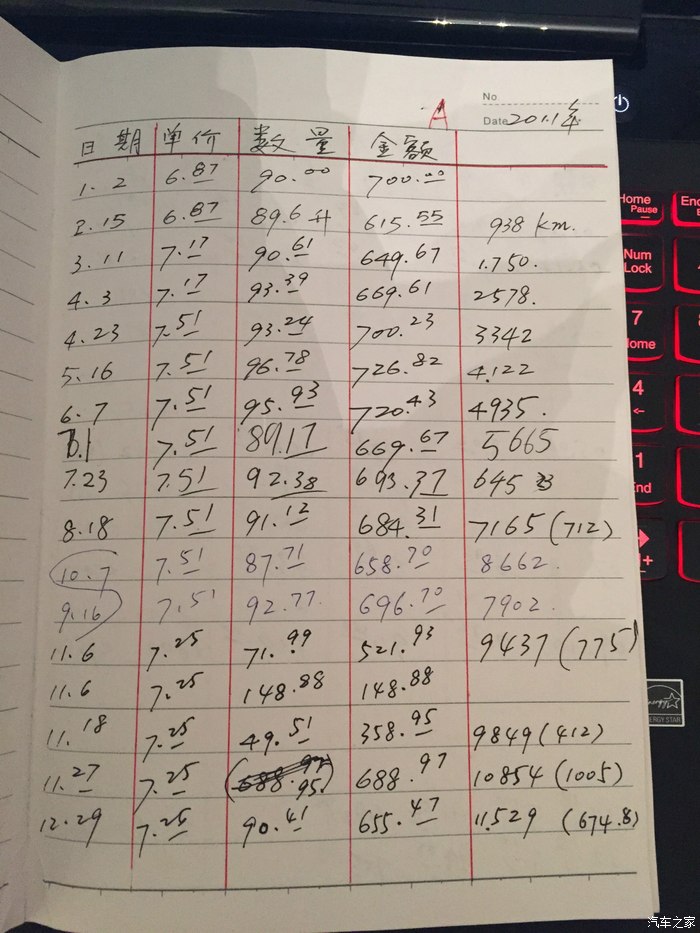 No
A
Date 2011年
日期 单价 数量 金额
1.2 6.87 90.00 700.00
2.15 6.87 89.6升 615.55 938 km.
3.11 7.17 90.61 649.67 1.750.
4.3 7.17 93.39 669.61 2578.
4.23 7.51 93.24 700.23 3342
5.16 7.51 96.78 726.82 4.122
6.7 7.51 95.93 720.43 4935.
7.1 7.51 89.17 669.67 5665
7.23 7.51 92.38 693.37 6453
8.18 7.51 91.12 684.31 7165 (712)
10.7 7.51 87.71 658.70 8662
9.16 7.51 92.77 696.70 7902.
11.6 7.25 71.99 521.93 9437 (775)
11.6 7.25 148.88 148.88
11.18 7.25 49.51 358.95 9849 (412)
11.27 7.25 (95.) 688.97 10854 (1005)
12.29 7.25 90.41 655.47 11.529 (674.8)
Home
Pause
End
Num
Lock
7
Home
4
←
1
End
+
ENERGY STAR
汽车之家